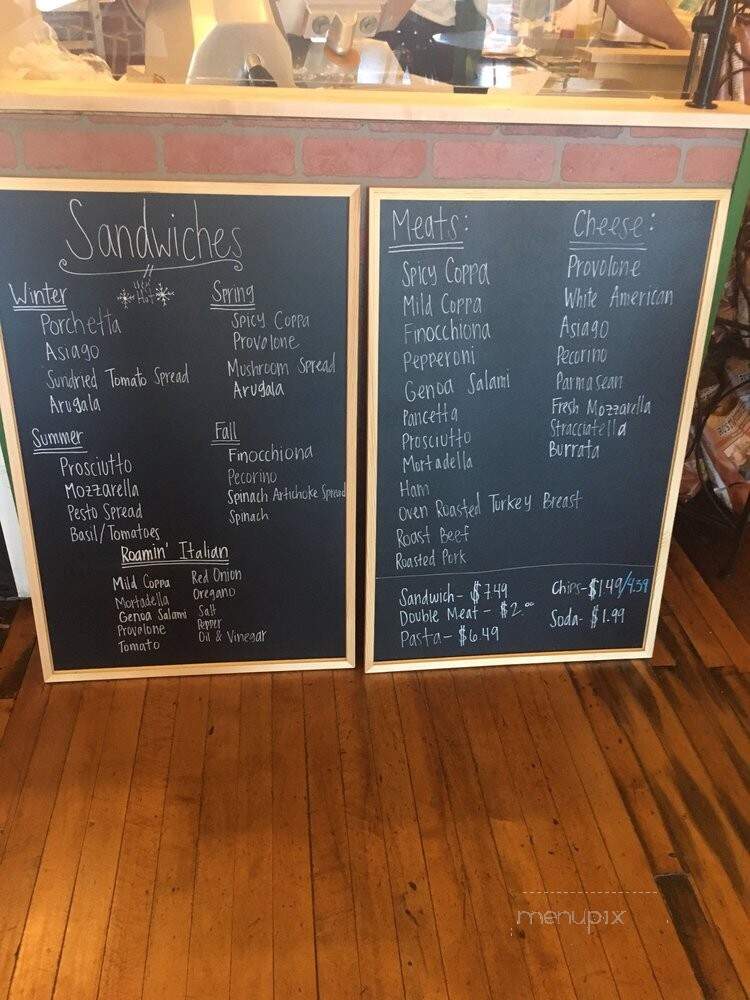 Sandwiches
Winter
Hot
Porchetta
Asiago
Sundried Tomato Spread
Arugala
Spring
Spicy Coppa
Provolone
Mushroom Spread
Arugala
Summer
Prosciutto
Mozzarella
Pesto Spread
Basil/Tomatoes
Fall
Finocchiona
Pecorino
Spinach Artichoke Spread
Spinach
Roamin' Italian
Mild Coppa
Mortadella
Genoa Salami
Provolone
Tomato
Red Onion
Oregano
Salt
Pepper
Oil & Vinegar
Meats:
Spicy Coppa
Mild Coppa
Finocchiona
Pepperoni
Genoa Salami
Pancetta
Prosciutto
Mortadella
Ham
Oven Roasted Turkey Breast
Roast Beef
Roasted Pork
Cheese:
Provolone
White American
Asiago
Pecorino
Parmasean
Fresh Mozzarella
Stracciatella
Burrata
Sandwich- $7.49
Double Meat - $2.00
Pasta- $6.49
Chips-$1.49/4.39
Soda- $1.99
menupix